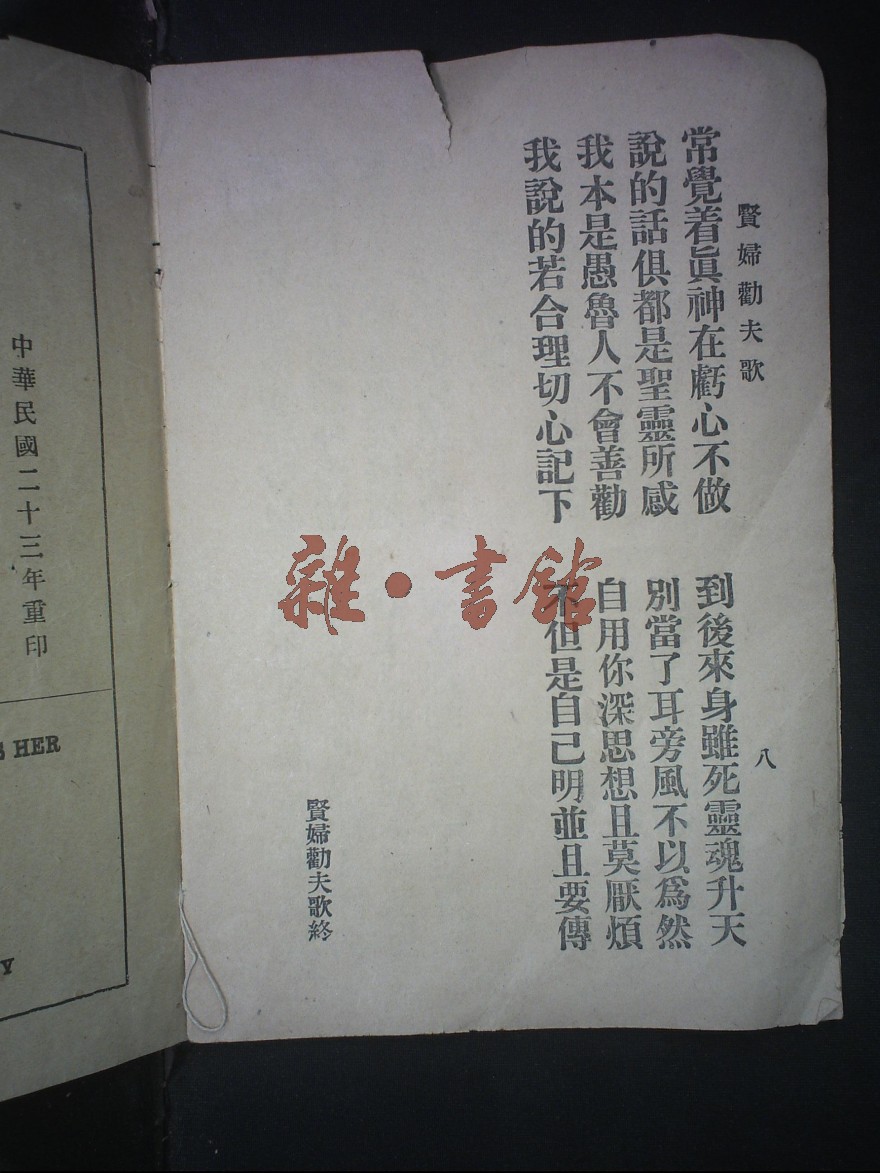 賢婦勸夫歌
八
常覺着眞神在虧心不做
到後來身雖死靈魂升天
說的話俱都是聖靈所感
別當了耳旁風不以爲然
我本是愚魯人不會善勸
自用你深思想且莫厭煩
我說的若合理切心記下
不但是自己明並且要傳
賢婦勸夫歌終
雜·書館
中華民國二十三年重印
HER